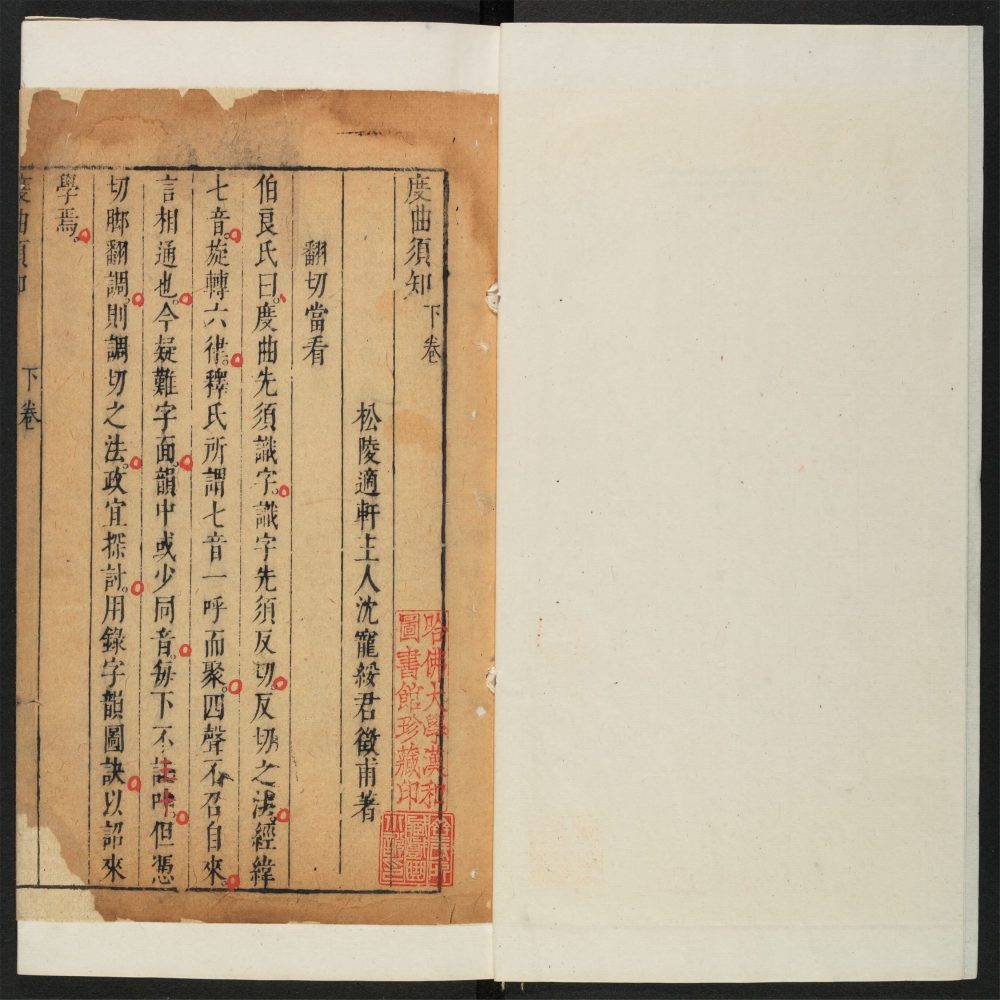 度曲須知 下卷
松陵適軒主人沈寵綏君徵甫著
翻切當看
伯良氏曰。度曲先須識字。識字先須反切。反切之法。經緯
七音。旋轉六律。釋氏所謂七音一呼而聚。四聲不召自來。
言相通也。今疑難字面。韻中或少同音。每下不註叶。但憑
切脚翻調。則調切之法。政宜探討。用錄字韻圖訣。以詔來
學焉。
度曲須知 下卷
哈佛大學漢和
圖書館珍藏印